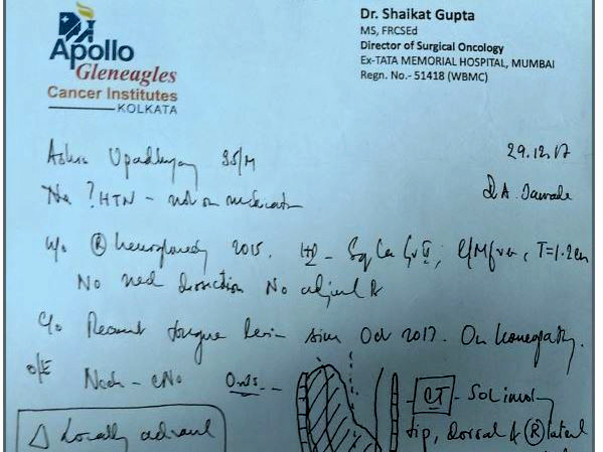 Apollo
Gleneagles
Cancer Institutes
KOLKATA
Dr. Shaikat Gupta
MS, FRCSEd
Director of Surgical Oncology
Ex-TATA MEMORIAL HOSPITAL, MUMBAI
Regn. No.- 51418 (WBMC)
35/M
29.12.17
? HTN - not on medication
Dr A.
(R) 2015. HP - Sq Ca Gr II, T=1.2cm
No neck dissection No adjuvt
C/o Recurrent tongue since Oct 2017. On homeopathy.
O/E Neck - cN0
CT - SOL involv
tip, dorsal & (R) lateral
Δ Locally